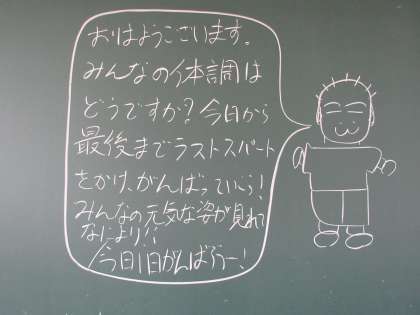 おはようございます。
みんなの体調は
どうですか？今日から
最後までラストスパート
をかけ、がんばっていこう！
みんなの元気な姿が見れて
なにより！！
今日1日がんばろうー！